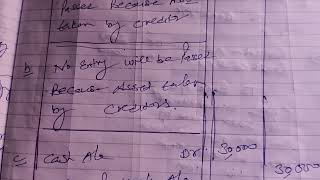 Passed Because
taken by creditors
b No entry will be passed
Because Asset taken
by creditors.
c Cash A/c Dr. 30,000
30,000